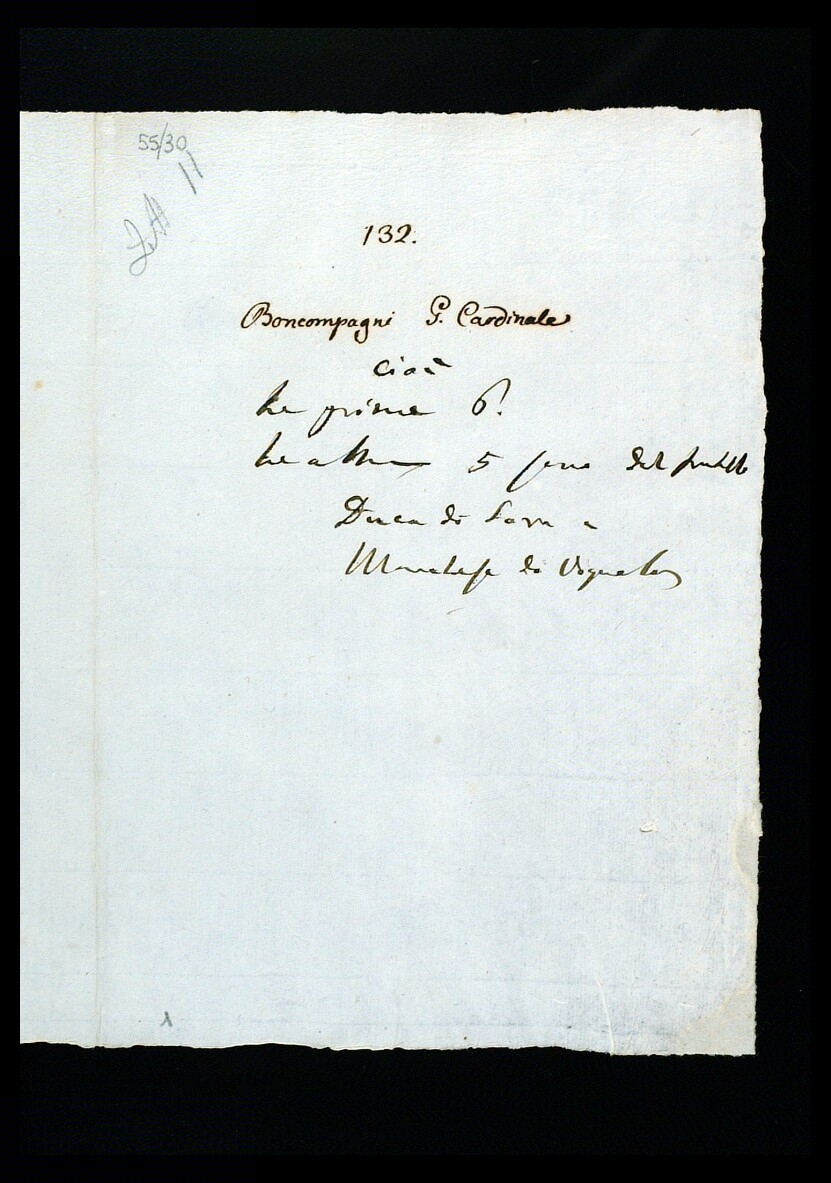 55/30
11
Lett
132.
Boncompagni G. Cardinale
cioè
Le prime 6.
Le altre 5 sono del fratello
Duca di Sora e
Marchese di Vignola
1